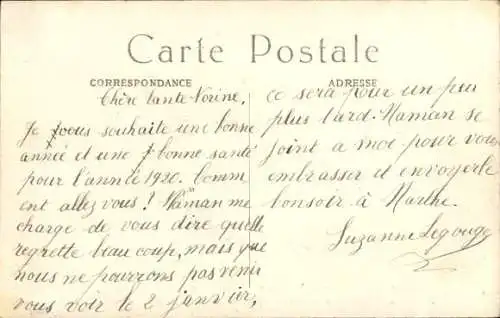 Carte Postale
CORRESPONDANCE
ADRESSE
Chère tante Norine,
Je vous souhaite une bonne
année et une bonne santé
pour l'année 1920. Comm
ent allez vous! Maman me
charge de vous dire qu'elle
regrette beau coup, mais que
nous ne pourrons pas venir
vous voir le 2 janvier,
ce sera pour un peu
plus tard. Maman se
joint a moi pour vous
embrasser et envoyerle
bonsoir à Marthe.
Suzanne Legouge